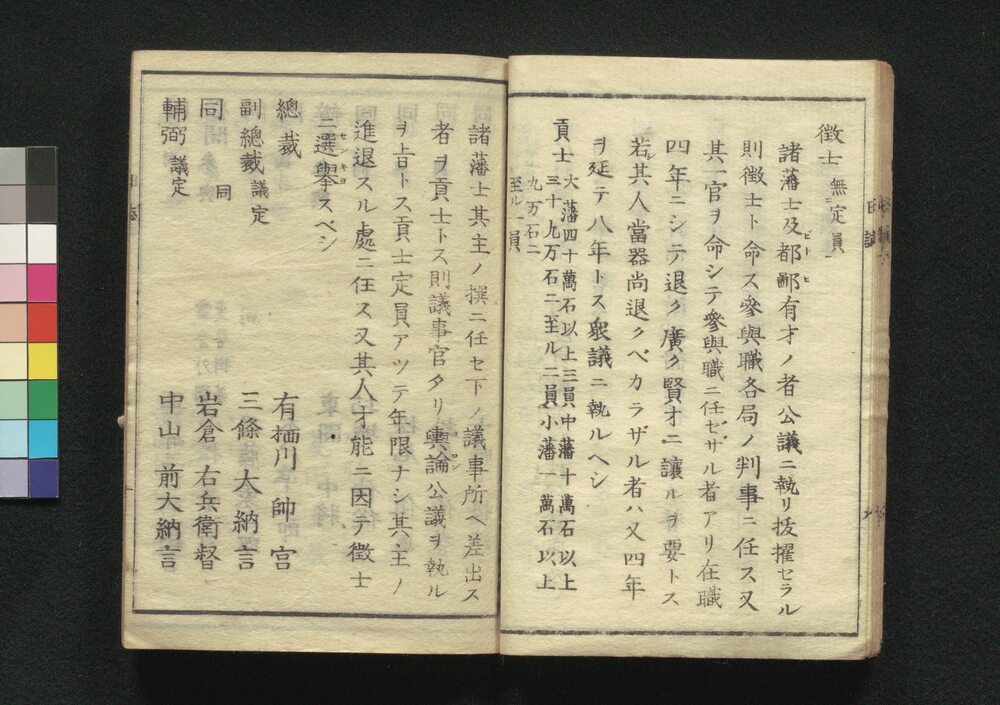 徴士 無定員
諸藩士及都鄙有才ノ者公議ニ執リ抜擢セラル
則徴士ト命ス參與職各局ノ判事ニ任ス又
其一官ヲ命シテ參與職ニ任セサル者アリ在職
四年ニシテ退ク廣ク賢才ニ讓ルヲ要トス
若其人當器尚退クベカラザル者ハ又四年
ヲ延テ八年トス衆議ニ執ルヘシ
貢士 大藩四十萬石以上三員中藩十萬石以上
三十九万石ニ至ル二員小藩一萬石以上
九万石ニ
至ル一員
諸藩士其主ノ撰ニ任セ下ノ議事所ヘ差出ス
者ヲ貢士トス則議事官タリ輿論公議ヲ執ル
ヲ旨トス貢士定員アツテ年限ナシ其主ノ
進退スル處ニ任ス又其人才能ニ因テ徴士
ニ選舉スベシ
總裁 有栖川 帥宮
副總裁 議定 三條 大納言
同 同 岩倉 右兵衛督
輔弼 議定 中山 前大納言